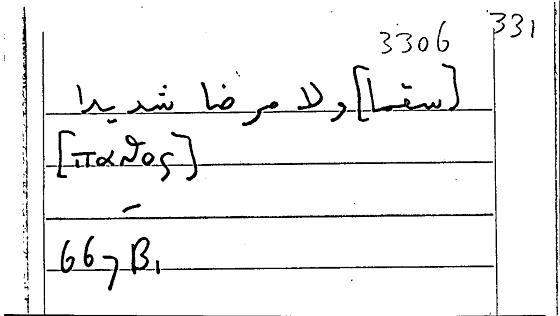 3306 331
[سقما] ولا مرضا شديدا
[παθος]
–
667 B1